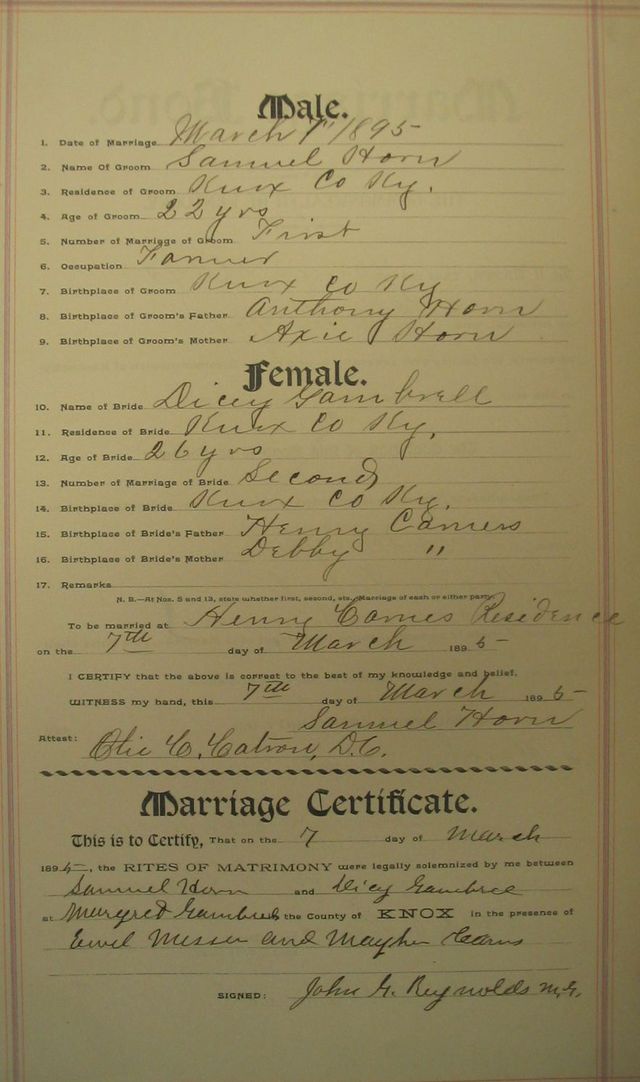 Male.
1. Date of Marriage March 7" 1895
2. Name Of Groom Samuel Horn
3. Residence of Groom Knox Co Ky.
4. Age of Groom 22 yrs
5. Number of Marriage of Groom First
6. Occupation Farmer
7. Birthplace of Groom Knox Co Ky
8. Birthplace of Groom's Father Anthony Horn
9. Birthplace of Groom's Mother Axie Horn
Female.
10. Name of Bride Dicey Gambrell
11. Residence of Bride Knox Co Ky.
12. Age of Bride 26 yrs
13. Number of Marriage of Bride Second
14. Birthplace of Bride Knox Co Ky.
15. Birthplace of Bride's Father Henry
16. Birthplace of Bride's Mother Debby "
17. Remarks
N. B.—At Nos. 5 and 13, state whether first, second, etc., Marriage of each or either party.
To be married at Henry Carnes Residence
on the 7th day of March 1895
I CERTIFY that the above is correct to the best of my knowledge and belief.
WITNESS my hand, this 7th day of March 1895
Samuel Horn
Attest: C. Catron, D.C.
Marriage Certificate.
This is to Certify, That on the 7 day of March
1895, the RITES OF MATRIMONY were legally solemnized by me between
Samuel Horn and Dicy
at the County of KNOX in the presence of
Messer and
SIGNED: John G. Reynolds M.G.